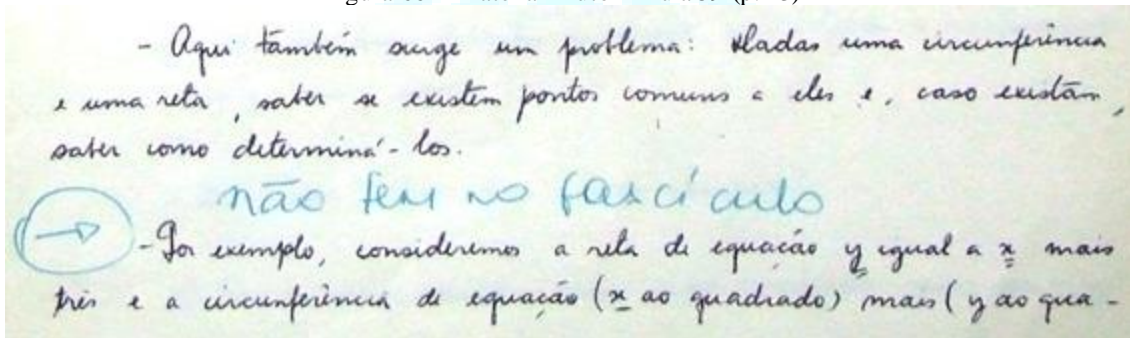 - Aqui também surge um problema: dadas uma circunferência
e uma reta, saber se existem pontos comuns a eles e, caso existam,
saber como determiná-los.
não tem no fascículo
- Por exemplo, consideremos a reta de equação y igual a x mais
três e a circunferência de equação (x ao quadrado) mais (y ao qua-